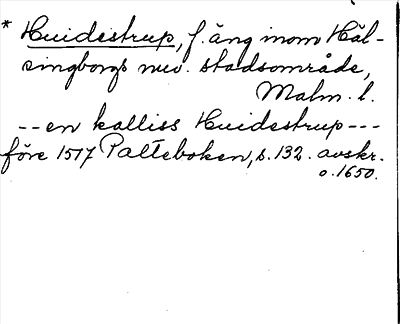 * Huidestrup, f. äng inom Häl-
singborgs nuv. stadsområde,
Malm. l.
-- en kalliss Huidestrup ---
före 1517 Palteboken, s. 132. avskr.
o. 1650.